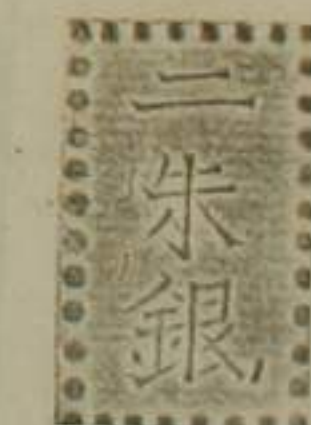 二朱銀